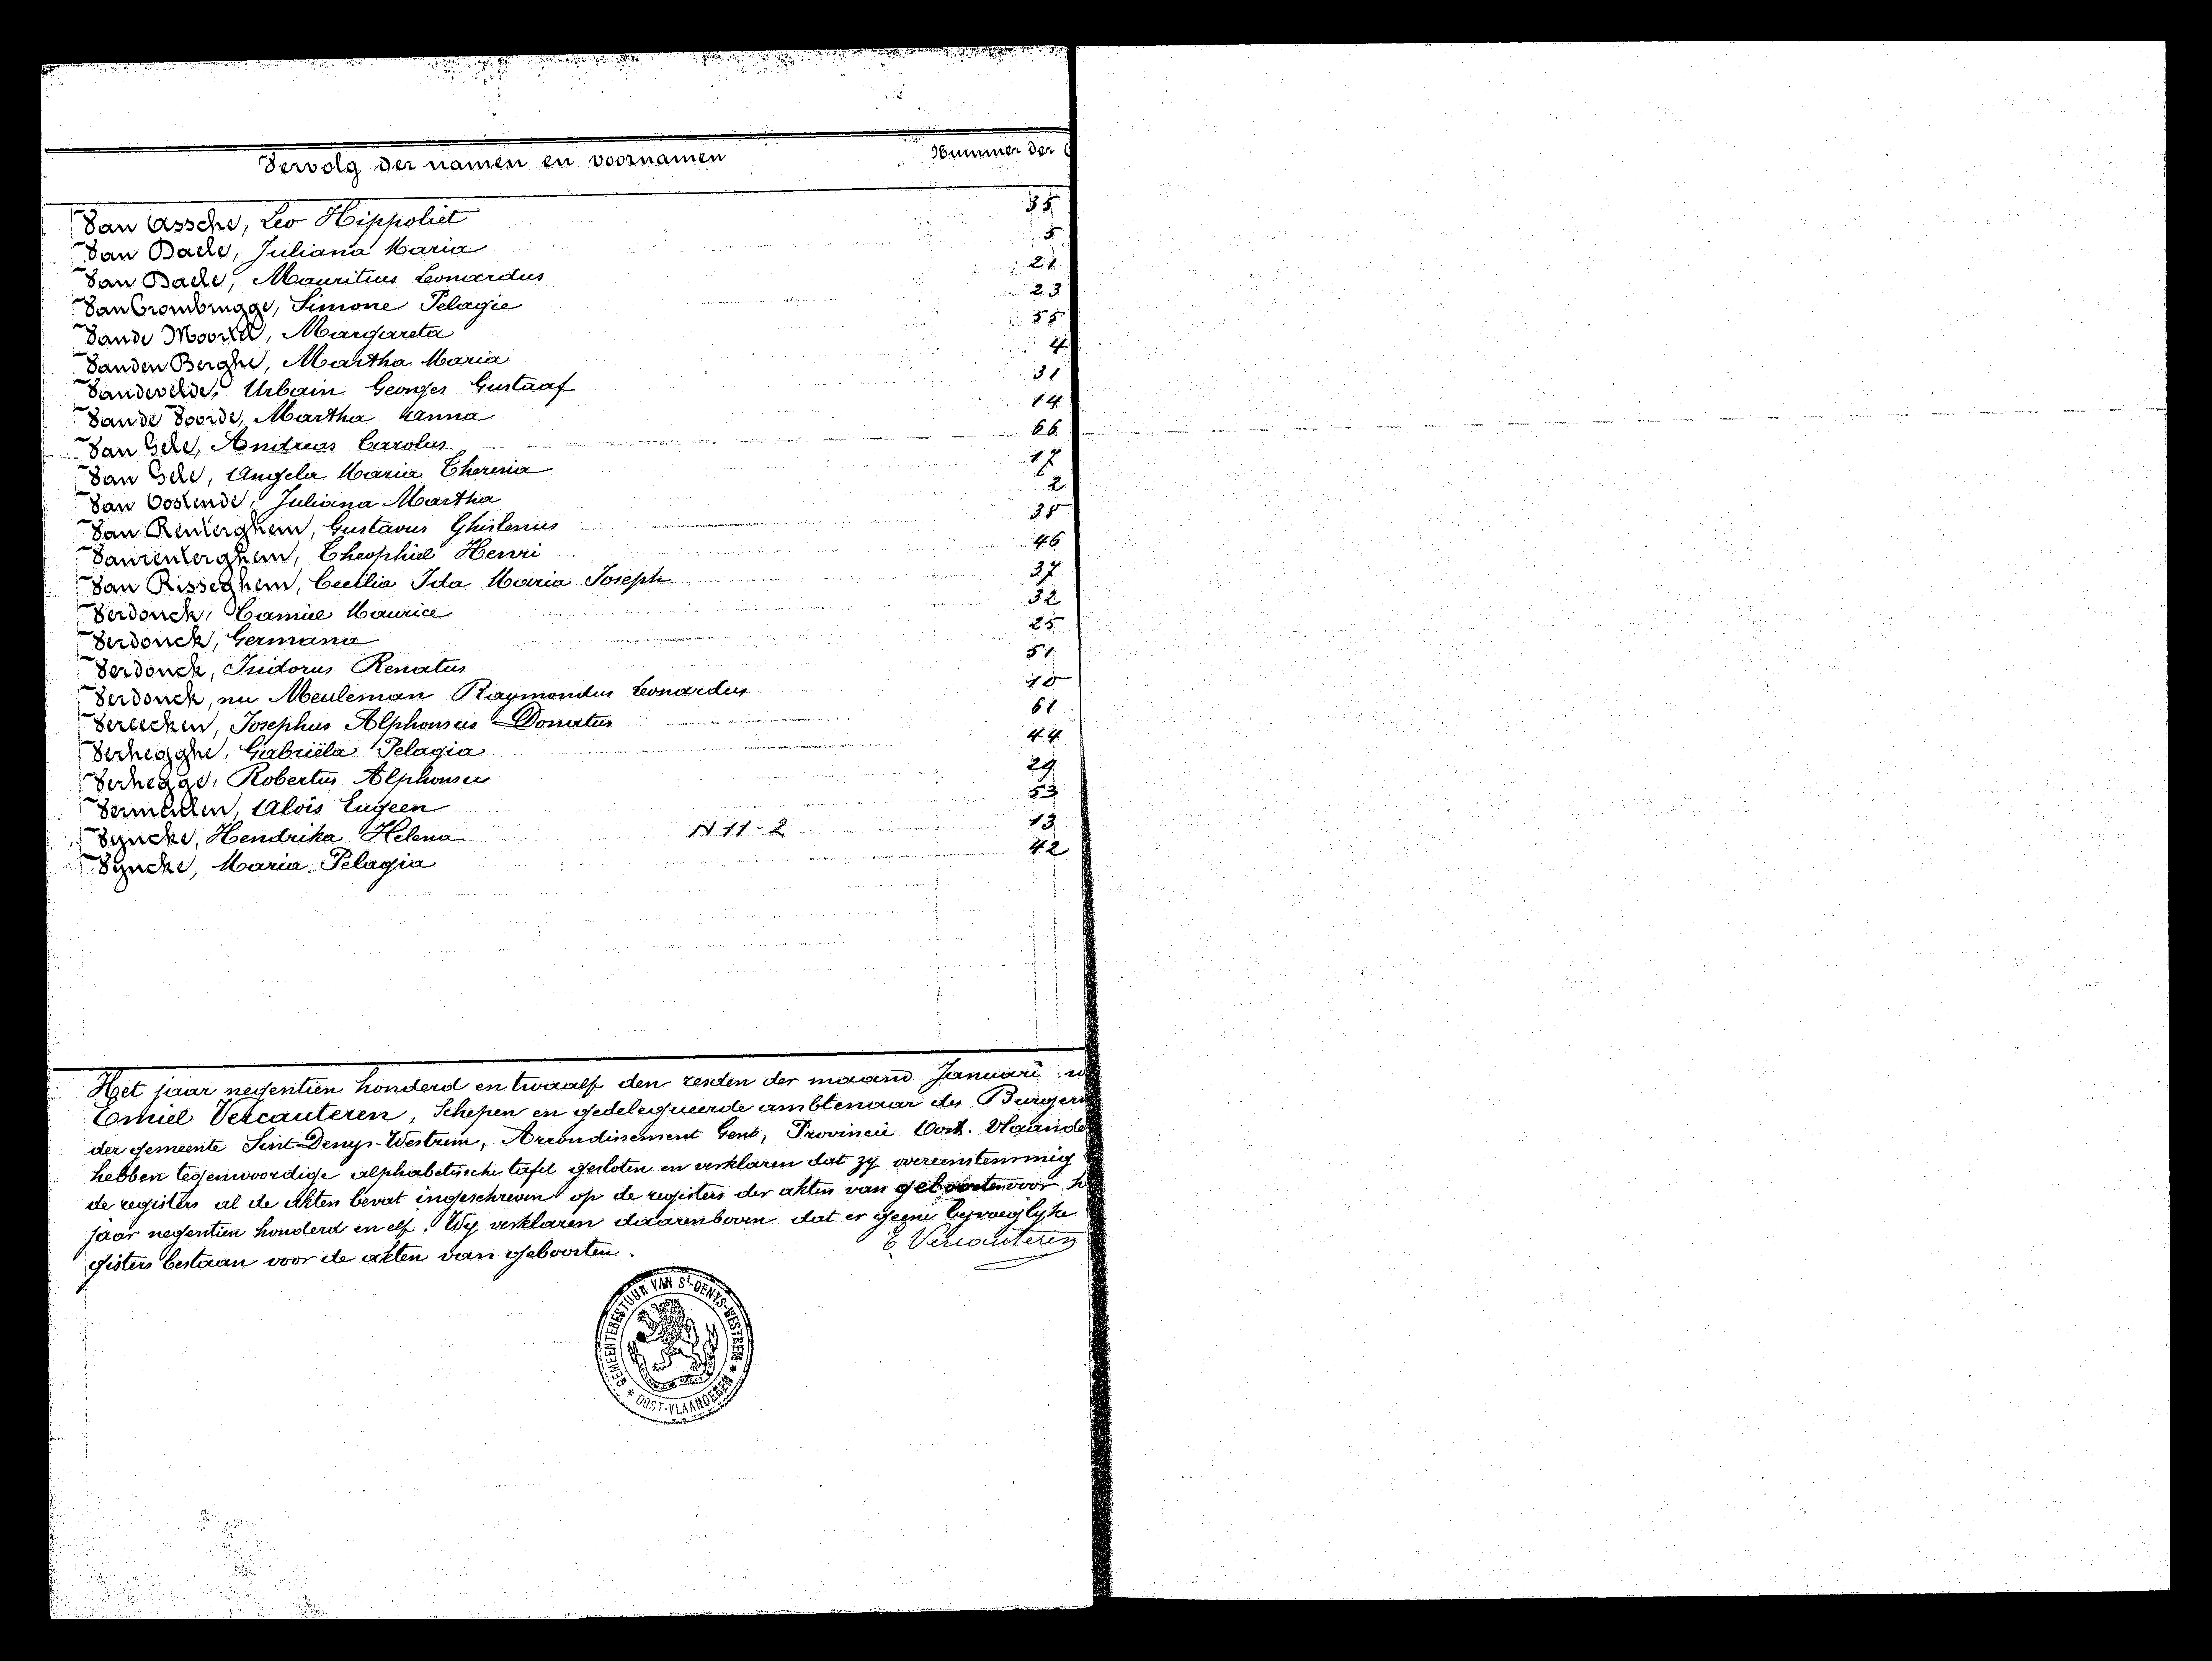 Vervolg der namen en voornamen Nummer der
Van Assche, Leo Hippoliet 35
Van Daele, Juliana Maria 5
Van Daele, Mauritius Leonardus 21
Van Crombrugge, Simone Pelagie 23
Vande Moortel, Margareta 55
Vanden Berghe, Martha Maria 4
Vandevelde, Urbain Georges Gustaaf 31
Van de Voorde, Martha Anna 14
Van Gele, Andreas Carolus 66
Van Gele, Angela Maria Theresia 17
Van Oostende, Juliana Martha 2
Van Renterghem, Gustavus Ghislenus 38
Vanrenterghem, Theophiel Henri 46
Van Risseghem, Cecilia Ida Maria Joseph 37
Verdonck, Camiel Maurice 32
Verdonck, Germana 25
Verdonck, Isidorus Renatus 51
Verdonck, nu Meuleman Raymondus Leonardus 10
Vereecken, Josephus Alphonsus Donatus 61
Verhegghe, Gabriëla Pelagia 44
Verhegge, Robertus Alphonsus 29
Vermeulen, Aloïs Eugeen 53
Vyncke, Hendrika Helena N 11-2 13
Vyncke, Maria Pelagia 42
Het jaar negentien honderd en twaalf den zesden der maand Januari
Emiel Vercauteren, Schepen en gedelegueerde ambtenaar des Burgerl
der gemeente Sint-Denys-Westrem, Arrondissement Gent, Provincie Oost. Vlaande
hebben tegenwoordige alphabetische tafel gesloten en verklaren dat zy overeenstemmig
de registers al de akten bevat ingeschreven op de registers der akten van geboorten voor h
jaar negentien honderd en elf. Wy verklaren daarenboven dat er geene byvoeglyke
gisters bestaan voor de akten van geboorten. E. Vercauteren
GEMEENTEBESTUUR VAN St-DENYS-WESTREM
* OOST-VLAANDEREN *